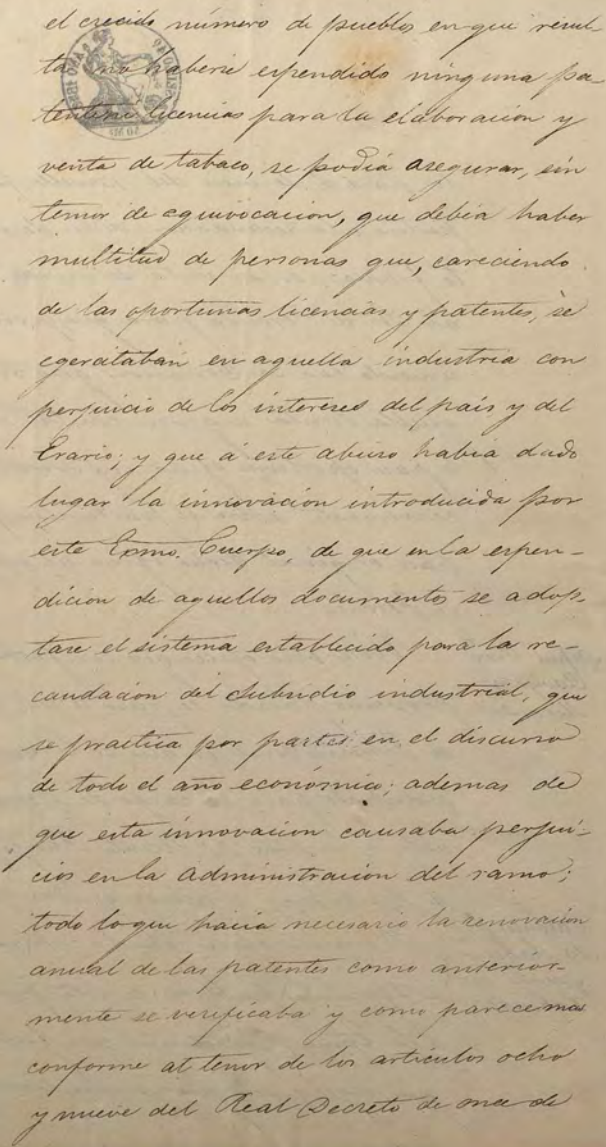 el crecido número de pueblos en que resul-
ta no haberse espendido ninguna pa-
tente ni licencias para la elaboracion y
venta de tabaco, se podia asegurar, sin
temor de equivocacion, que debia haber
multitud de personas que, careciendo
de las oportunas licencias y patentes, se
egercitaban en aquella industria con
perjuicio de los intereses del pais y del
Erario; y que á este abuso habia dado
lugar la innovacion introducida por
este Exmo. Cuerpo, de que en la espen-
dicion de aquellos documentos se adop-
tare el sistema establecido para la re-
caudacion del Subsidio industrial, que
se practica por partes en el discurso
de todo el año económico; ademas de
que esta innovacion causaba perjui-
cios en la Administracion del ramo;
todo lo que hacia necesario la renovacion
anual de las patentes como anterior-
mente se verificaba y como parece mas
conforme al tenor de los artículos ocho
y nueve del Real Decreto de once de